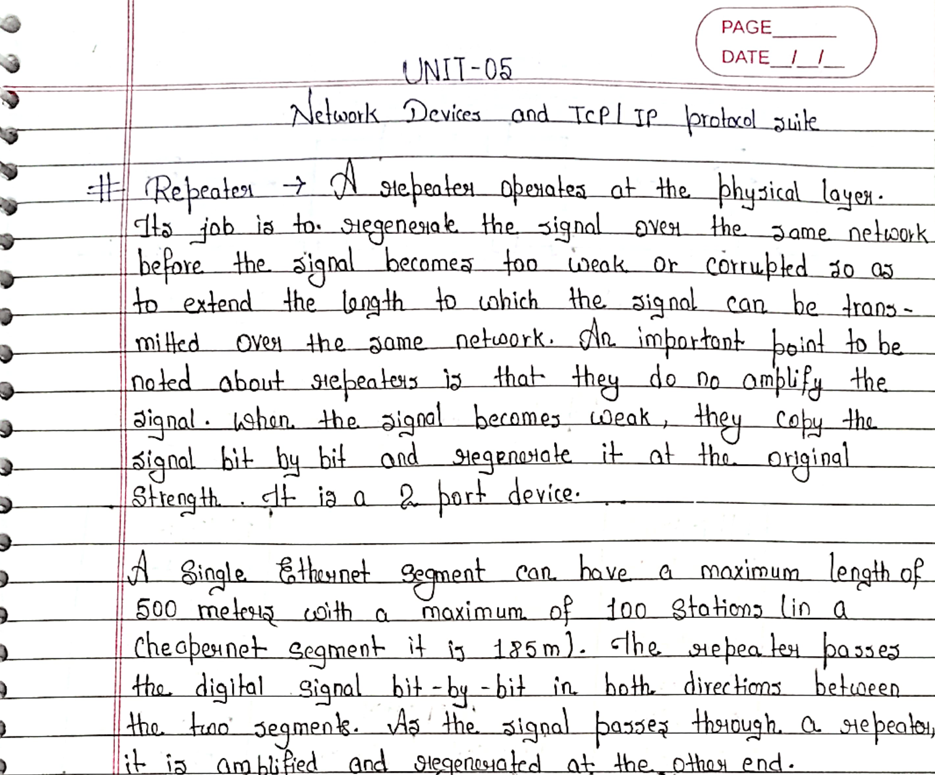 PAGE
DATE / /
UNIT-05
Network Devices and TCP/IP protocol suite
# Repeater → A repeater operates at the physical layer.
Its job is to. regenerate the signal over the same network
before the signal becomes too weak or corrupted so as
to extend the length to which the signal can be trans-
mitted over the same network. An important point to be
noted about repeaters is that they do no amplify the
signal. When the signal becomes weak, they copy the
signal bit by bit and regenerate it at the original
Strength. It is a 2 port device.
A Single Ethernet Segment can have a maximum length of
500 meters with a maximum of 100 Stations (in a
Cheapernet segment it is 185m). The repeater passes
the digital Signal bit-by-bit in both directions between
the two segments. As the signal passes through a repeater,
it is amplified and regenerated at the other end.